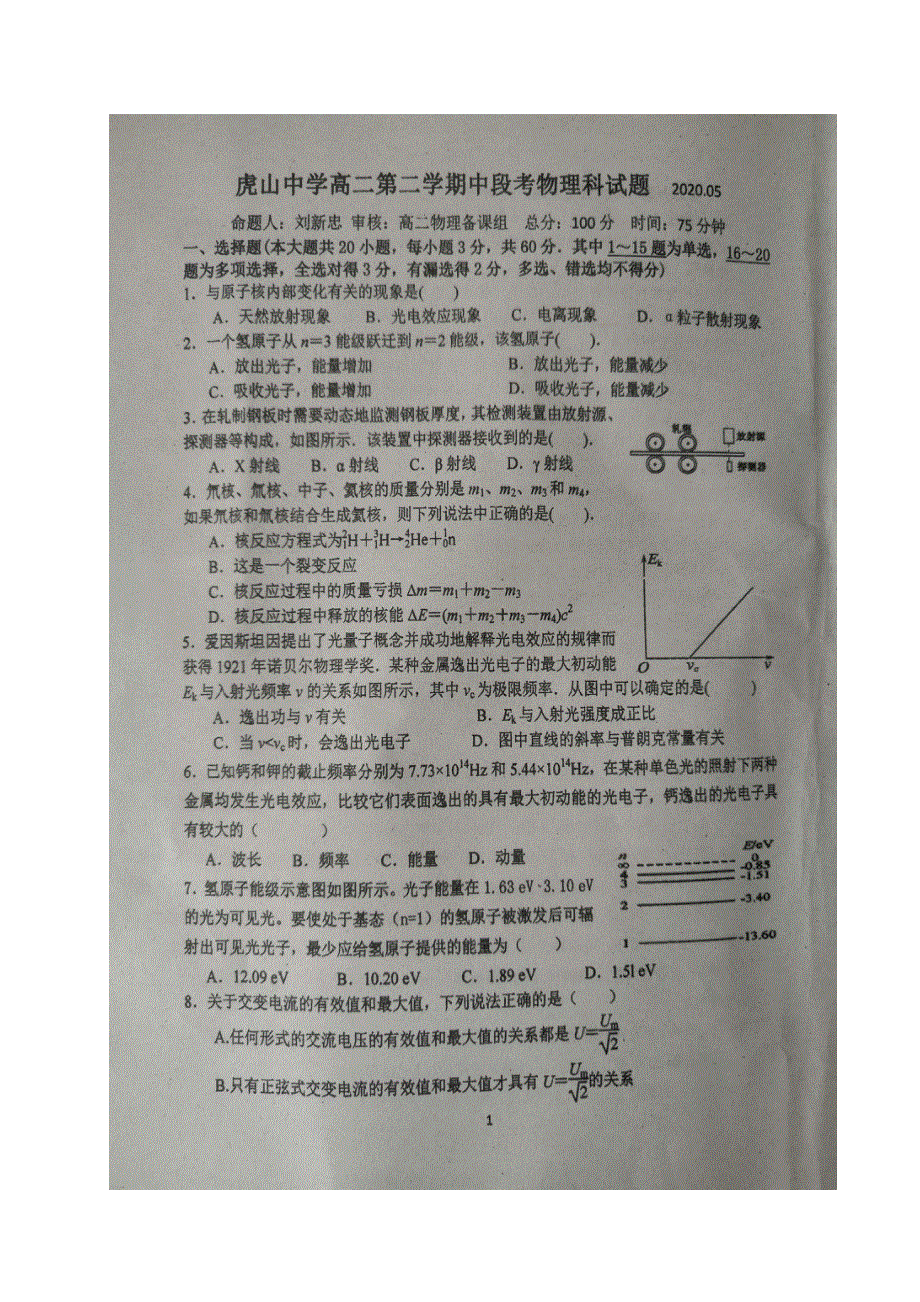 虎山中学高二第二学期中段考物理科试题 2020.05
命题人：刘新忠 审核：高二物理备课组 总分：100分 时间：75分钟
一、选择题(本大题共20小题，每小题3分，共60分．其中1～15题为单选，16～20
题为多项选择，全选对得3分，有漏选得2分，多选、错选均不得分)
1．与原子核内部变化有关的现象是( )
A．天然放射现象 B．光电效应现象 C．电离现象 D．α粒子散射现象
2．一个氢原子从n＝3能级跃迁到n＝2能级，该氢原子( )．
A．放出光子，能量增加 B．放出光子，能量减少
C．吸收光子，能量增加 D．吸收光子，能量减少
3．在轧制钢板时需要动态地监测钢板厚度，其检测装置由放射源、
探测器等构成，如图所示．该装置中探测器接收到的是( )．
轧辊 放射源
探测器
A．X射线 B．α射线 C．β射线 D．γ射线
4．氘核、氚核、中子、氦核的质量分别是m₁、m₂、m₃和m₄，
如果氘核和氚核结合生成氦核，则下列说法中正确的是( )．
A．核反应方程式为²₁H＋³₁H→⁴₂He＋¹₀n
B．这是一个裂变反应
C．核反应过程中的质量亏损Δm＝m₁＋m₂－m₃
D．核反应过程中释放的核能ΔE＝(m₁＋m₂＋m₃－m₄)c²
Eₖ
O ν꜀ ν
5．爱因斯坦因提出了光量子概念并成功地解释光电效应的规律而
获得1921年诺贝尔物理学奖．某种金属逸出光电子的最大初动能
Eₖ与入射光频率ν的关系如图所示，其中ν꜀为极限频率．从图中可以确定的是( )
A．逸出功与ν有关 B．Eₖ与入射光强度成正比
C．当ν<ν꜀时，会逸出光电子 D．图中直线的斜率与普朗克常量有关
6．已知钙和钾的截止频率分别为7.73×10¹⁴Hz和5.44×10¹⁴Hz，在某种单色光的照射下两种
金属均发生光电效应，比较它们表面逸出的具有最大初动能的光电子，钙逸出的光电子具
有较大的（ ）
A．波长 B．频率 C．能量 D．动量
n E/eV
∞ 0
4 -0.85
3 -1.51
2 -3.40
1 -13.60
7．氢原子能级示意图如图所示。光子能量在1.63 eV~3.10 eV
的光为可见光。要使处于基态（n=1）的氢原子被激发后可辐
射出可见光光子，最少应给氢原子提供的能量为（ ）
A．12.09 eV B．10.20 eV C．1.89 eV D．1.5l eV
8．关于交变电流的有效值和最大值，下列说法正确的是（ ）
A.任何形式的交流电压的有效值和最大值的关系都是U＝Uₘ/√2
B.只有正弦式交变电流的有效值和最大值才具有U＝Uₘ/√2的关系
1